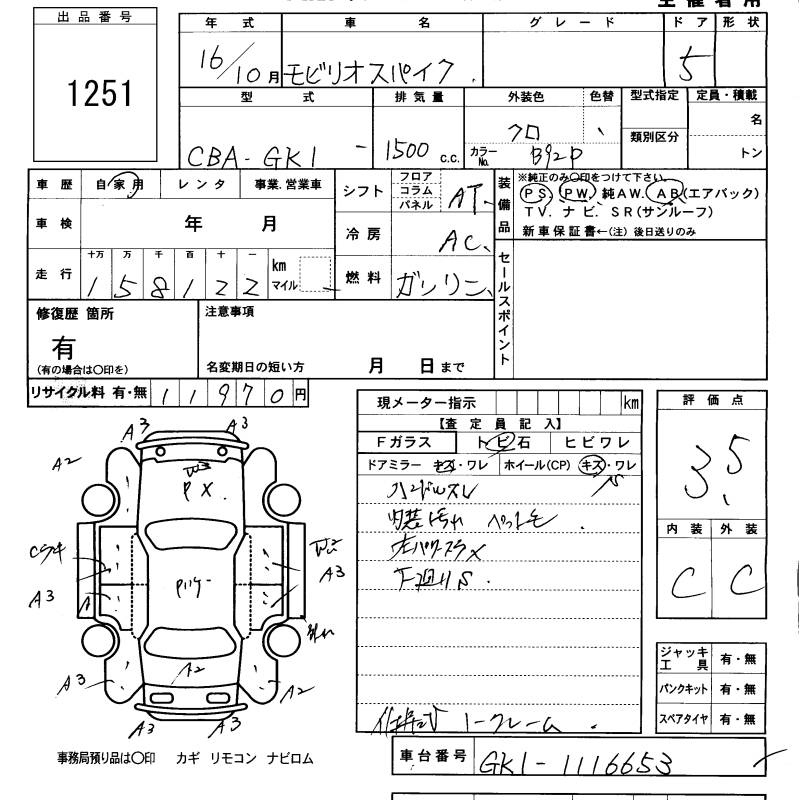 出品番号
1251
年式 車名 グレード ドア 形状
16/10月 モビリオスパイク 5
型式 排気量 外装色 色替 型式指定 定員・積載
CBA-GK1 1500 c.c. クロ カラーNo. B92P 類別区分 名 トン
車歴 自家用 レンタ 事業.営業車
車検 年 月
走行 十万 万 千 百 十 一 km マイル
1 5 8 1 2 2
シフト フロア コラム パネル AT
冷房 AC
燃料 ガソリン
装備品
※純正のみ○印をつけて下さい。
PS. PW. 純AW. AB(エアバック)
TV. ナビ. SR(サンルーフ)
新車保証書←(注) 後日送りのみ
セールスポイント
修復歴 箇所
有
(有の場合は○印を)
注意事項
名変期日の短い方 月 日まで
リサイクル料 有・無 11970円
現メーター指示 km
【査定員記入】
Fガラス トビ石 ヒビワレ
ドアミラー キズ・ワレ ホイール(CP) キズ・ワレ
ハンドルスレ
内装ヨゴレ ペット毛
左パワスラ×
下廻りS.
トークレーム.
評価点
3.5
内装 外装
C C
A3 A3
A2 W3
PX.
A3
A3 A
A3 A2 A2
A3 A3
ジャッキ工具 有・無
パンクキット 有・無
スペアタイヤ 有・無
事務局預り品は○印 カギ リモコン ナビロム
車台番号 GK1-1116653